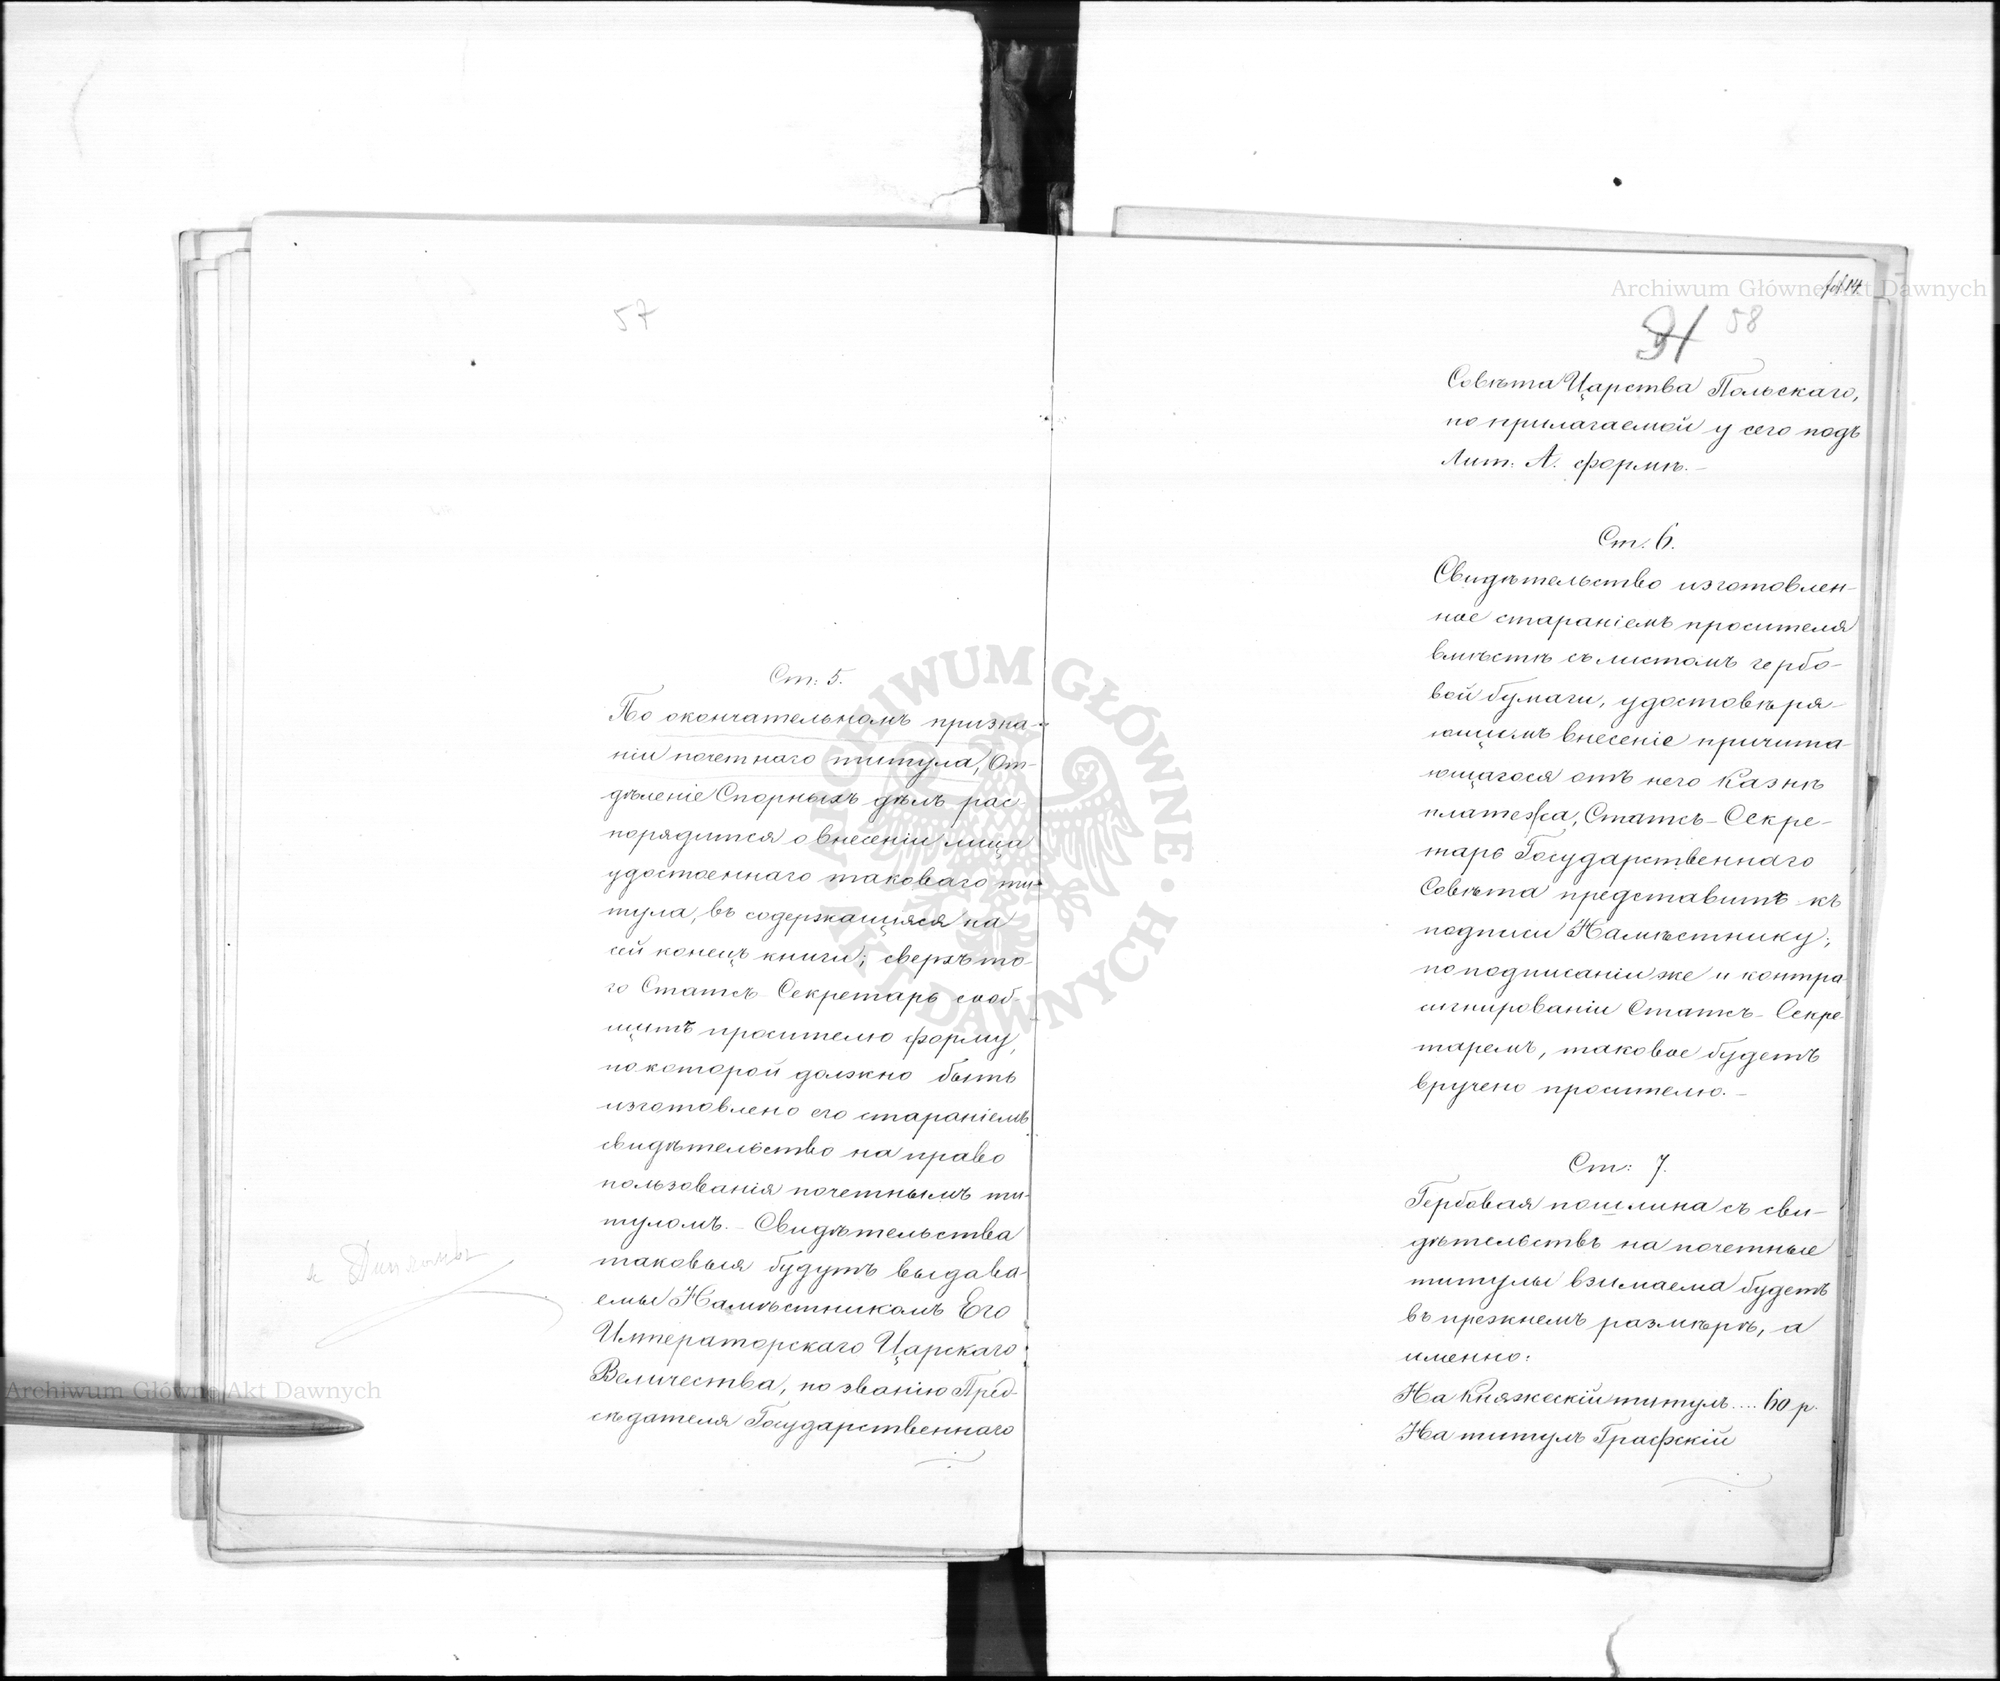 57
Ст: 5.
По окончательномъ призна-
ніи почетнаго титула, От-
дѣленіе Спорныхъ дѣлъ рас-
порядится о внесеніи лица
удостоеннаго таковаго ти-
тула, въ содержащіяся на
сей конецъ книги; сверхъ то-
го Статсъ-Секретарь сооб-
щитъ просителю форму,
по которой должно быть
изготовлено его стараніемъ
свидѣтельство на право
пользованія почетнымъ ти-
туломъ. - Свидѣтельства
таковыя будутъ выдава-
емы Намѣстникомъ Его
Императорскаго Царскаго
Величества, по званію Пред-
сѣдателя Государственнаго
Archiwum Główne Akt Dawnych
ARCHIWUM GŁÓWNE AKT DAWNYCH
Archiwum Główne Akt Dawnych
58
Совѣта Царства Польскаго,
по прилагаемой у сего подъ
Лит: А. формѣ. -
Ст: 6.
Свидѣтельство изготовлен-
ное стараніемъ просителя
вмѣстѣ съ листомъ гербо-
вой бумаги, удостовѣря-
ющимъ внесеніе причита-
ющагося отъ него Казнѣ
платежа, Статсъ-Секре-
тарь Государственнаго
Совѣта представитъ къ
подписи Намѣстнику;
по подписаніи же и контра-
сигнированіи Статсъ-Секре-
таремъ, таковое будетъ
вручено просителю. -
Ст: 7.
Гербовая пошлина съ сви-
дѣтельствъ на почетные
титулы взимаема будетъ
въ прежнемъ размѣрѣ, а
именно:
На Княжескій титулъ.... 60 р.
На титулъ Графскій